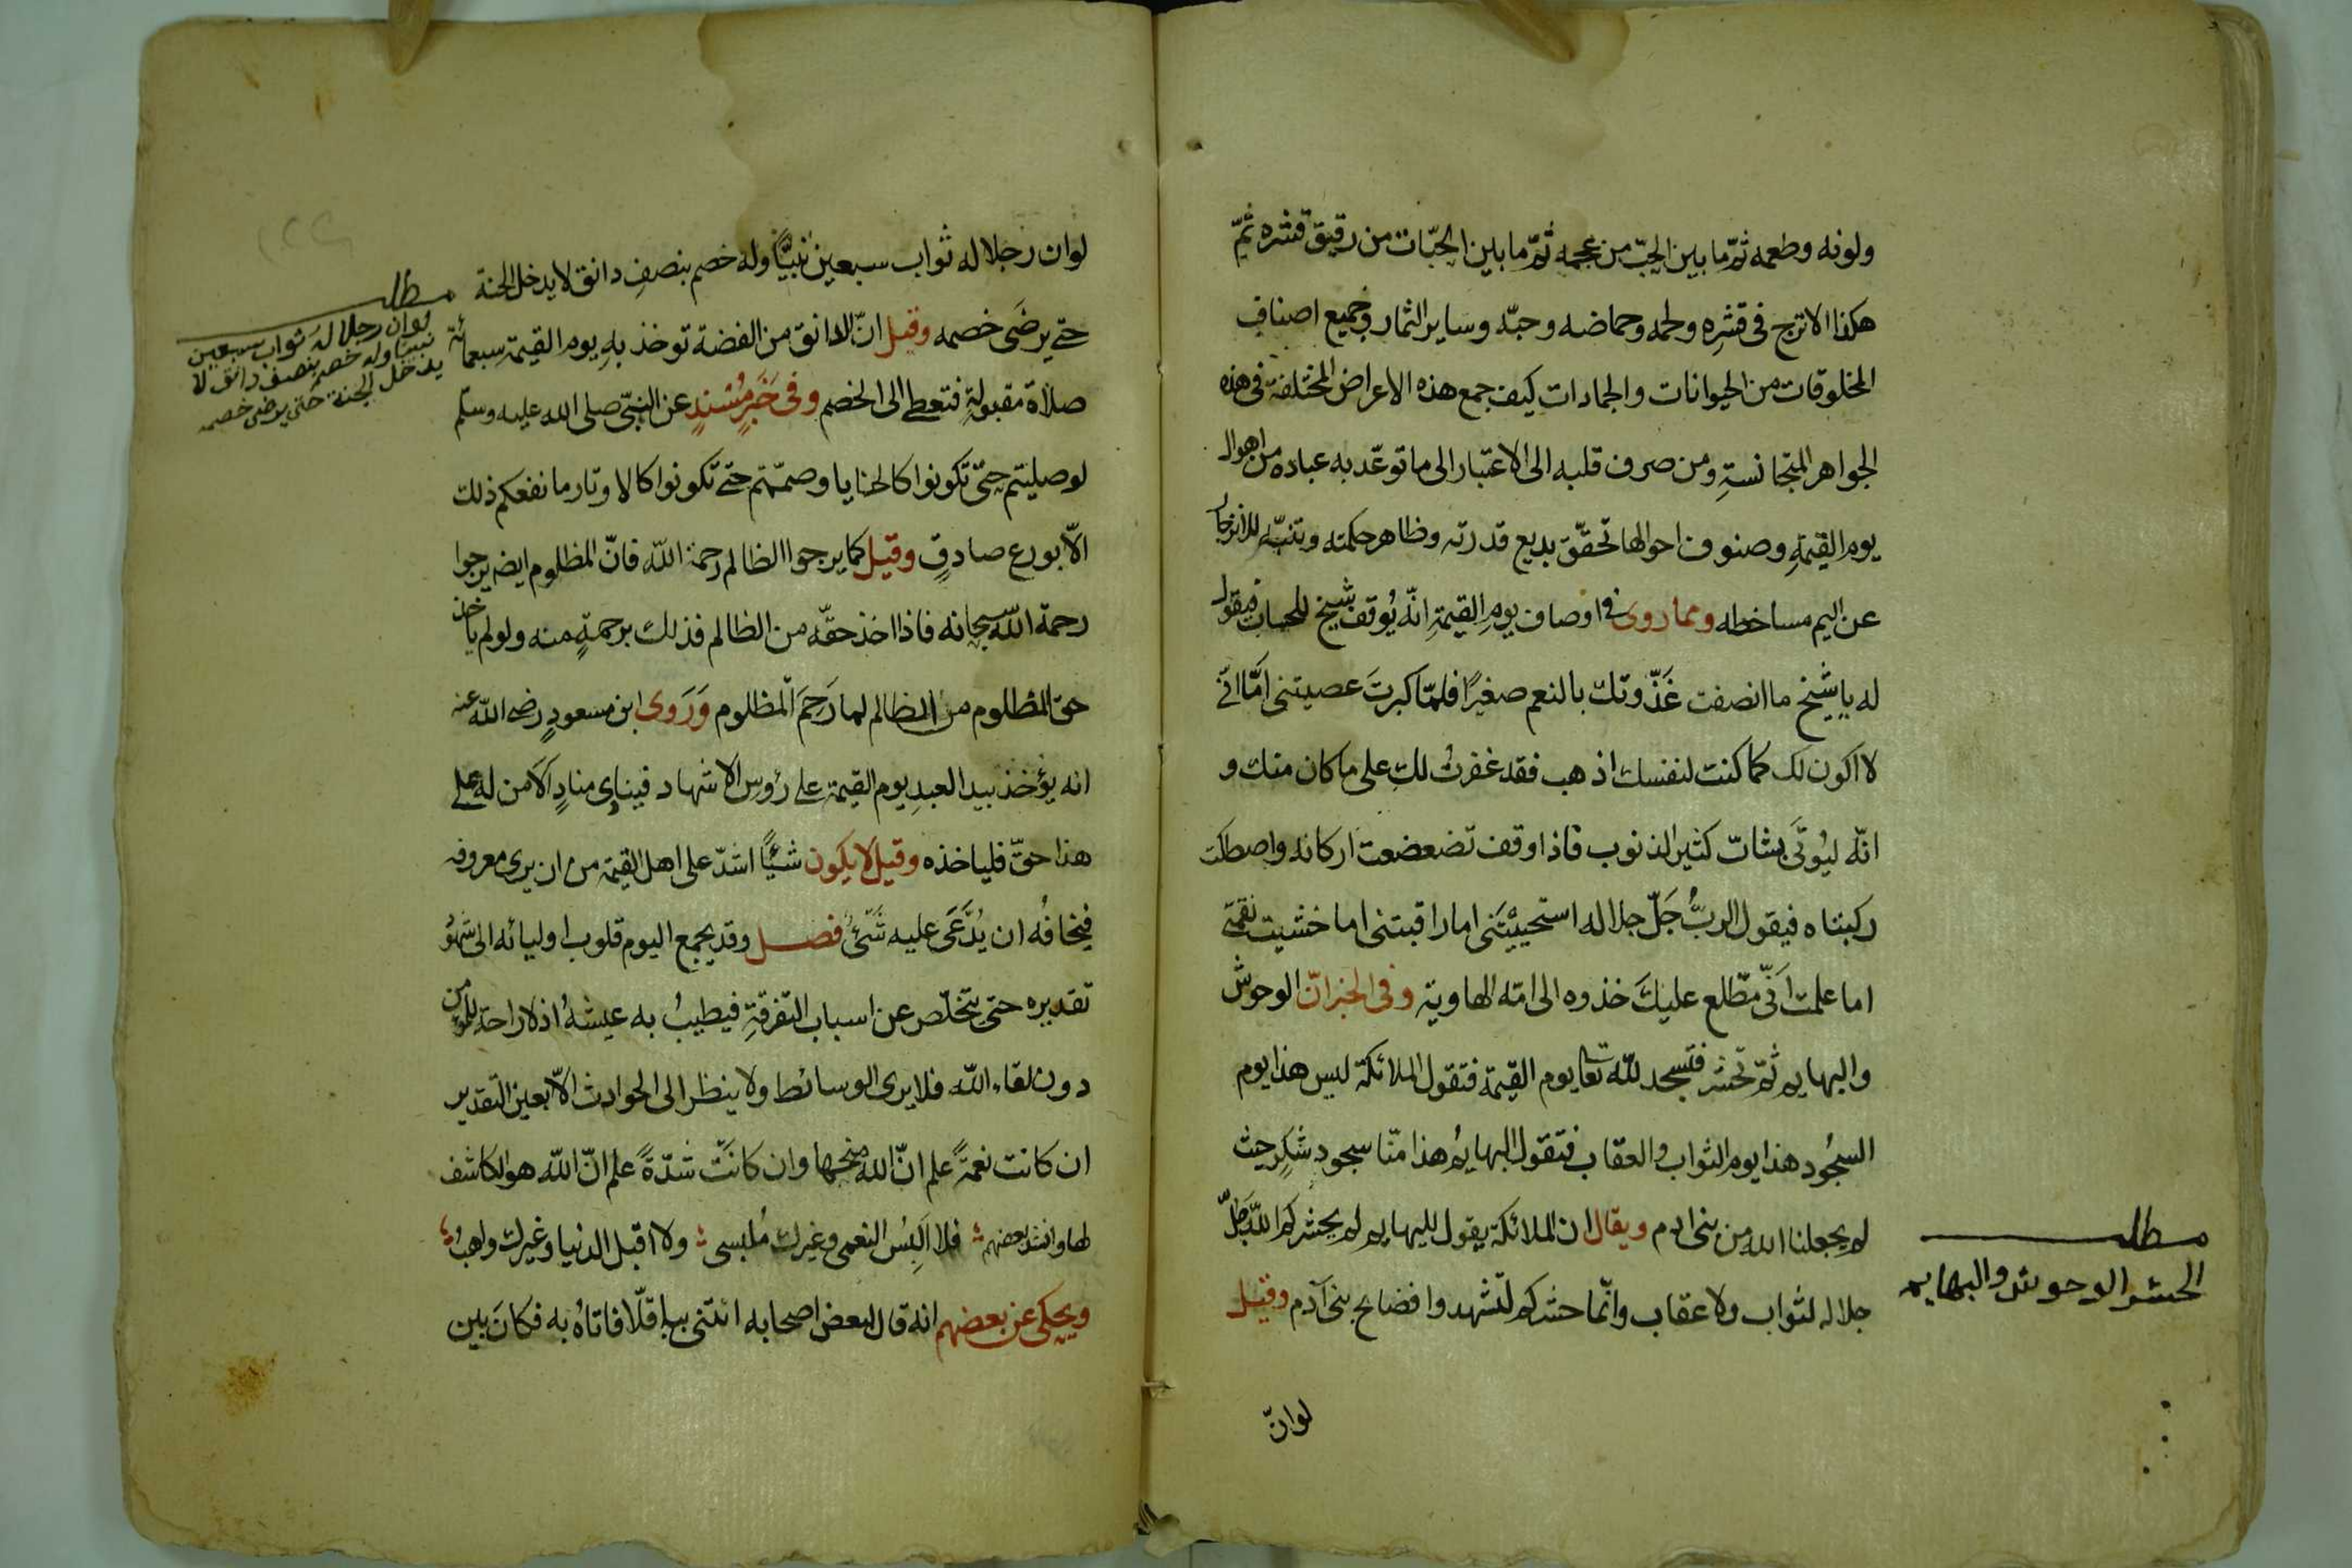 ولونه وطعمه ثمّ ما بين الحبّ من عجمه ثمّ ما بين الحبّات من رقيق قشره ثمّ
هكذا الاترج فى قشره ولحمه وحماضه وحبّه وساير الثمار وجميع اصناف
المخلوقات من الحيوانات والجمادات كيف جمع هذه الاعراض المختلفة فى هذه
الجواهر المتجانسةِ ومن صرف قلبه الى الاعتبار الى ما توعّد به عباده من اهوال
يوم القيمةِ وصنوف احوالها تحقّق بديع قدرته وظاهر حكمته وتنبّه للانزجار
عن اليم مساخطه ومما روى فى اوصاف يومِ القيمةِ انّه يُوقف شيخ للحساب فيقول
له يا شيخ ما انصفت غَذّوتك بالنعم صغيرًا فلمّا كبرتَ عصيتنى امَّا انّى
لا اكون لك كما كنت لنفسك اذهب فقد غفرتُ لك على ما كان منك و
انّه ليُوتَى بشابّ كثير الذنوب فاذا وقف تضعضعت اركانه واصطكت
ركبتاه فيقول الربُّ جَلّ جلاله استحييْتَنى اما راقبتنى اما خشيت نقمتى
اما علمت اَنّى مطّلع عليكَ خذوه الى امّه الهاوية وفى الخبر انّ الوحوش
والبهايم ثمّ تحشر فتسجد للّه تعا يوم القيمة فتقول الملائكة ليس هذا يوم
السجُود هذا يوم الثواب والعقاب فتقول البهايمُ هذا منّا سجود شكرٍ حيث
لم يجعلنا الله من بنى ادم ويقال ان الملائكة يقول للبهايم لم يحشركم اللّه جَلّ
جلاله لثواب ولا عقاب وانّما حشركم لتشهدوا فضايح بنى آدم وقيل
لوانّ
مطلب
الحشر الوحوش والبهايم
لوان رجلا له ثواب سبعين نبيًّا وله خصم بنصفِ دانق لا يدخل الجنة
حتّى يرضَى خصمه وقيل انّ الدانق من الفضة توخذ بهِ يوم القيمةِ سبعمائة
صلاة مقبولةٍ فتعطى الى الخصم وفى خَبَرٍ مُسْندٍ عن النبىّ صلى الله عليه وسلّم
لو صليتم حتّى تكونوا كالحنايا وصمّتم حتّى تكونوا كالاوتار ما نفعكم ذلك
الّا بورع صادقٍ وقيل كما يرجوا الظالم رحمة اللّه فانّ المظلوم ايضم يرجوا
رحمة اللّه سبحانه فاذا اخذ حقّه من الظالم فذلك برحمةٍ منه ولو لم ياخذ
حق المظلوم من الظالم لما رَحِمَ المظلوم وَرَوى ابن مسعودٍ رضى اللّه عنه
انه يؤخذ بيد العبدِ يوم القيمة على رؤس الاشهاد فينادى منادٍ اَلَا من له على
هذا حقّ فلياخذه وقيل لا يكون شيًا اشدّ على اهل القيمة من ان يرى معروفه
فيخافُه ان يُدَّعَى عليه شَىْءٌ فصل وقد يجمع اليوم قلوب اوليائه الى شهُو
تقديره حتى يتخلّص عن اسباب التفرقةِ فيطيبُ به عيشهُ اذ لا راحة للمؤمن
دون لقاء اللّه فلا يرى الوسائط ولا ينظر الى الحوادث الّا بعين التقدير
ان كانت نعمةً علم انّ الله منحها وان كانَتْ شدّةً علم انّ اللّه هو الكاشف
لها وانشد بعضهم فلا البسُ النعمى وغيرك مُلبسى ولا اقبل الدنيا وغيرك واهبُ
ويحكى عن بعضهم انه قال لبعض اصحابه ائتنى بباقلّا فاتاهُ به فكانَ بين
مطلب
لوان رجلا له ثواب سبعين
نبيًا وله خصم بنصف دانق لا
يدخل الجنة حتى يرضى خصمه